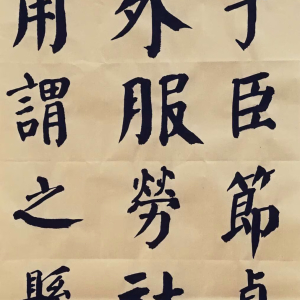 于臣節貞
外服勞社
用謂之縣